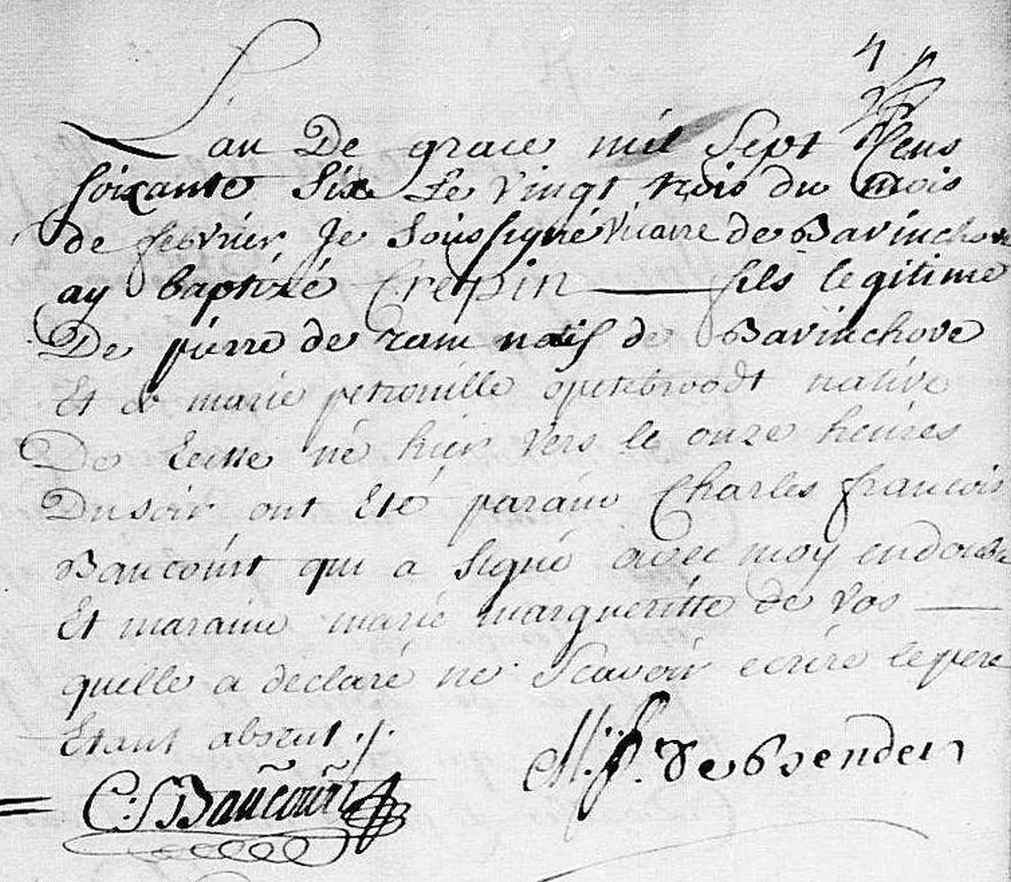 L'an De grace mil Sept Cens
soixante Six Le Vingt trois du mois
de febvrier Je Soussigné Vicaire de Bavinchove
ay baptizé Crepin fils legitime
De pierre de ram natif de Bavinchove
Et de marie petronille spetebroodt native
De Eecke né hier vers le onze heures
Du soir ont Eté parain Charles francois
Baucourt qui a signé avec moy en double
Et maraine marie margueritte de Vos
quelle a declaré ne Scavoir ecrire le pere
Etant absent ./.
C: f Baucourt
M: f. De Brender